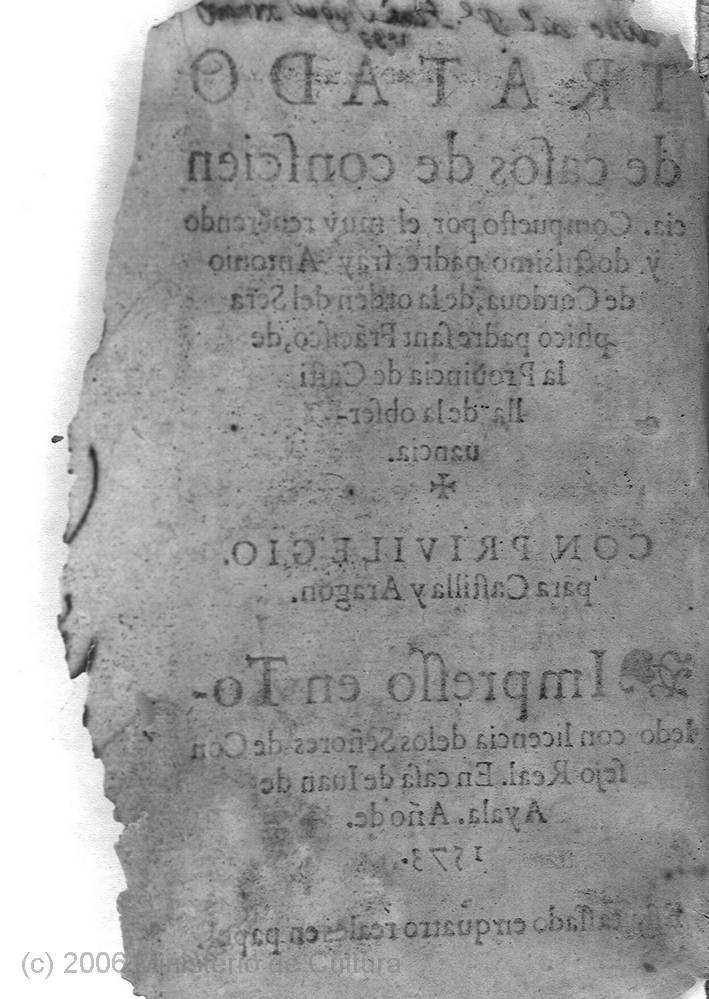 TRATADO
de casos de conscien
cia. Compuesto por el muy reuerendo
y doctissimo padre fray Antonio
de Cordoua, de la orden del Sera
phico padre sant Frãcisco, de
la Prouincia de Casti
lla de la obser-
uancia.
✠
CON PRIVILEGIO.
para Castilla y Aragon.
Impresso en To-
ledo con licencia delos Señores de Con
sejo Real. En casa de Iuan de
Ayala. Año de.
1573.
Esta tassado en quatro reales en papel
(c) 2006 Ministerio de Cultura